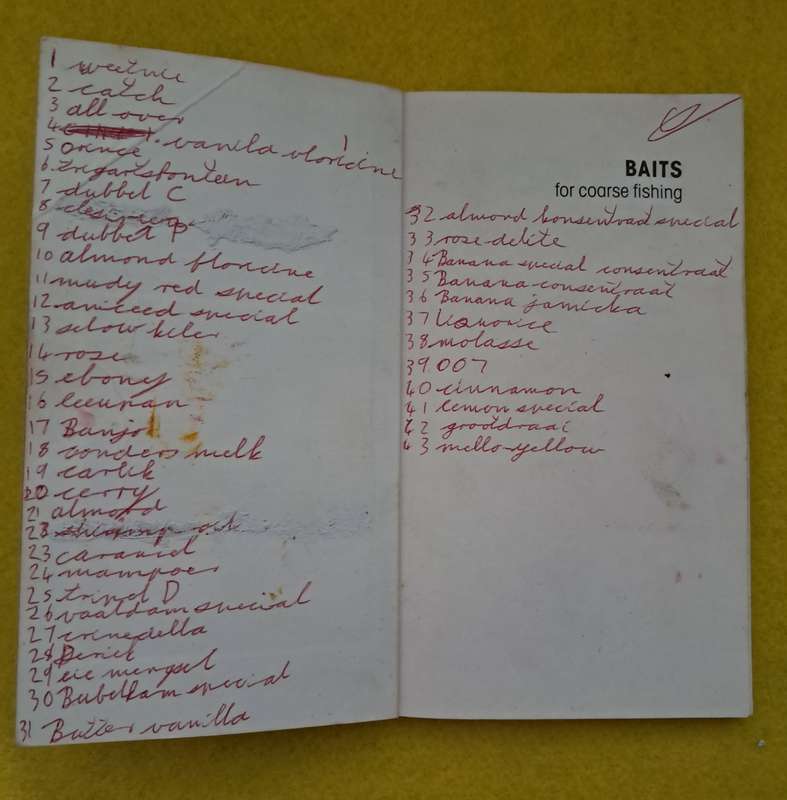 1
2 catch
3 all over
4 vanila vloricine
5 orince
6
7 dubbel C
8
9 dubbel P
10 almond floricine
11 mudy red special
12 aniceed special
13
14 rose
15 ebony
16 leeunan
17 Banjo
18 conders melk
19 carlik
20 cerry
21 almond
23
23
24 mampoer
25 tripel D
26 vaaldam special
27
28
29 eie mengsel
30 special
31 Butter vanilla
BAITS
for coarse fishing
32 almond konsentraat special
33 rose delite
34 Banana special consentraat
35 Banana consentraat
36 Banana jamicka
37
38 molasse
39 007
40 cinnamon
41 lemon special
42 grootdraai
43 mello yellow